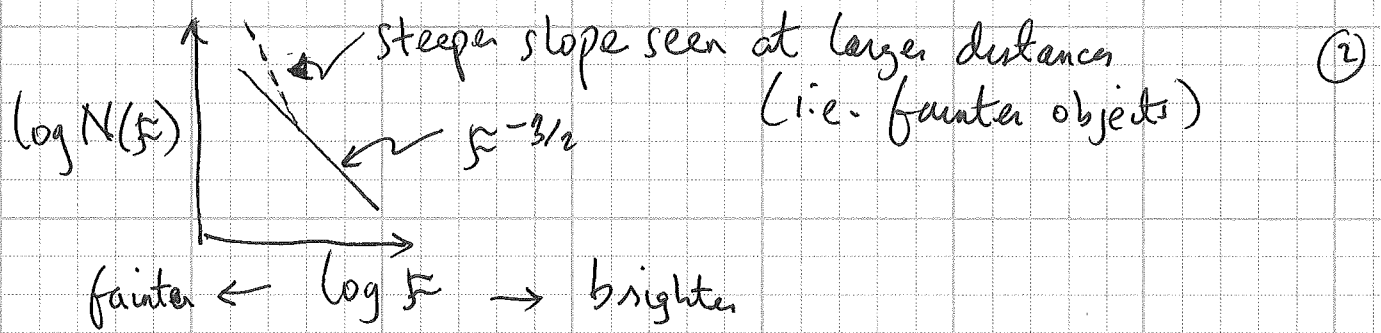 steeper slope seen at larger distances ②
(i.e. fainter objects)
log N(F)
F^-3/2
fainter ← log F → brighter